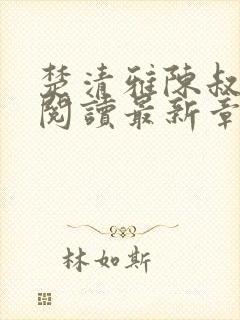 楚清雅陳叔
閱讀最新章
林如斯